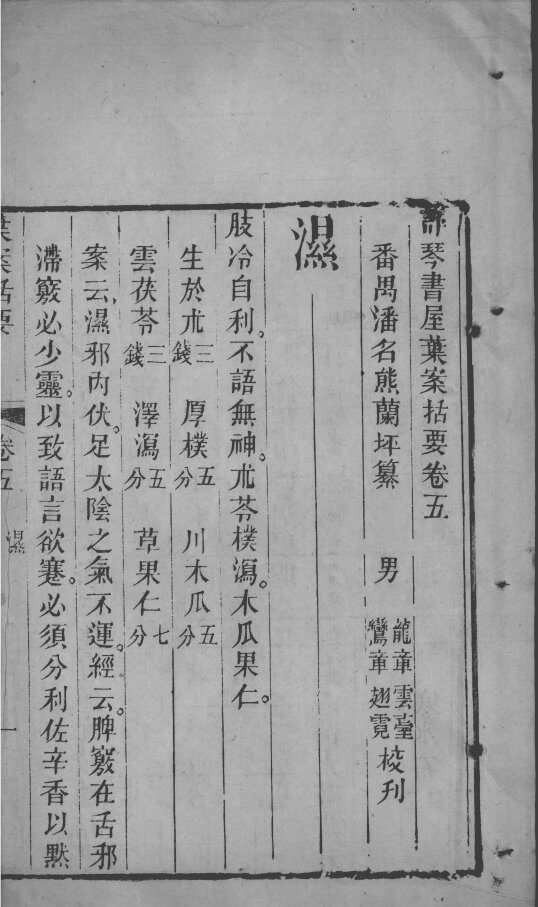 評琴書屋葉案括要卷五
番禺潘名熊蘭坪纂 男 龍章雲臺 鸞章翅霓 校刋
濕
肢冷自利。不語無神。朮苓樸瀉。木瓜果仁。
生於朮三錢 厚樸五分 川木瓜五分
雲茯苓三錢 澤瀉五分 草果仁七分
案云濕邪內伏。足太陰之氣不運。經云。脾竅在舌邪
滯竅必少靈。以致語言欲蹇。必須分利佐辛香以默
葉案括要 卷五 濕 一